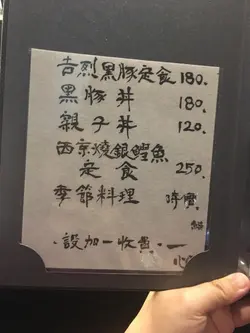 吉烈黑豚定食 180.
黑豚丼 180.
親子丼 120.
西京燒銀鱈魚
定食 250.
季節料理 時價
·設加一收費·